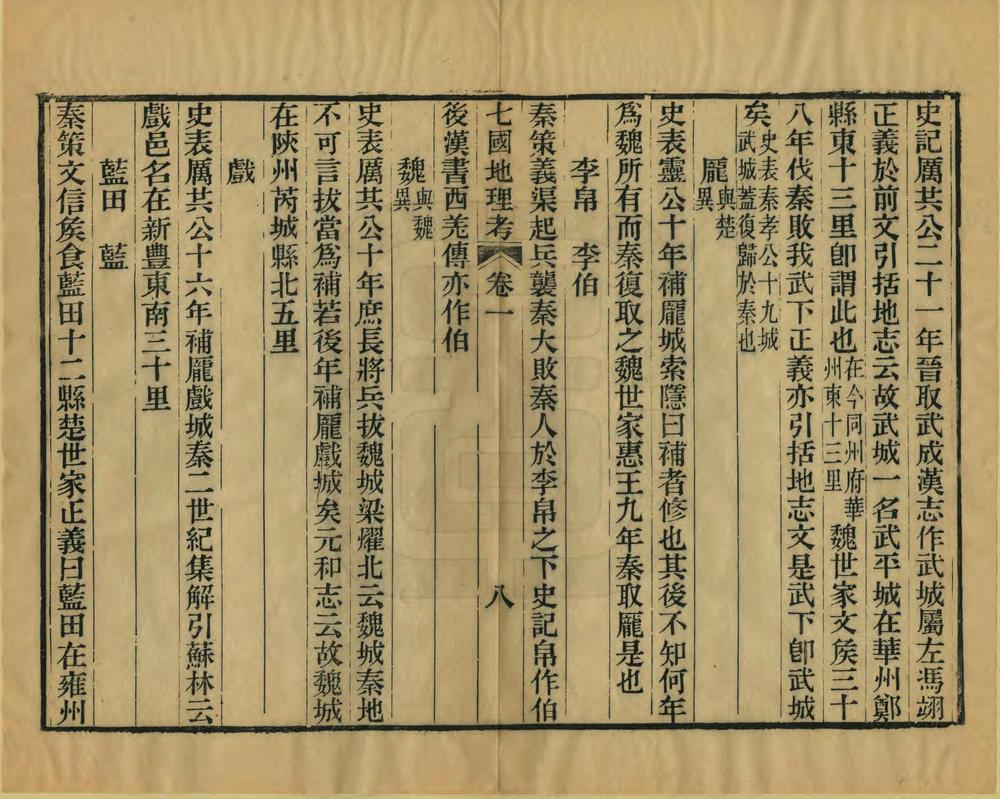 史記厲共公二十一年晉取武成漢志作武城屬左馮翊
正義於前文引括地志云故武城一名武平城在華州鄭
縣東十三里卽謂此也在今同州府華州東十三里魏世家文矦三十
八年伐秦敗我武下正義亦引括地志文是武下卽武城
矣史表秦孝公十九城武城蓋復歸於秦也
龐與楚異
史表靈公十年補龐城索隱曰補者修也其後不知何年
爲魏所有而秦復取之魏世家惠王九年秦取龐是也
李帛 李伯
秦策義渠起兵襲秦大敗秦人於李帛之下史記帛作伯
七國地理考 卷一 八
後漢書西羌傳亦作伯
魏與魏異
史表厲共公十年庶長將兵拔魏城梁燿北云魏城秦地
不可言拔當爲補若後年補龐戲城矣元和志云故魏城
在陝州芮城縣北五里
戲
史表厲共公十六年補龐戲城秦二世紀集解引蘇林云
戲邑名在新豐東南三十里
藍田 藍
秦策文信矦食藍田十二縣楚世家正義曰藍田在雍州